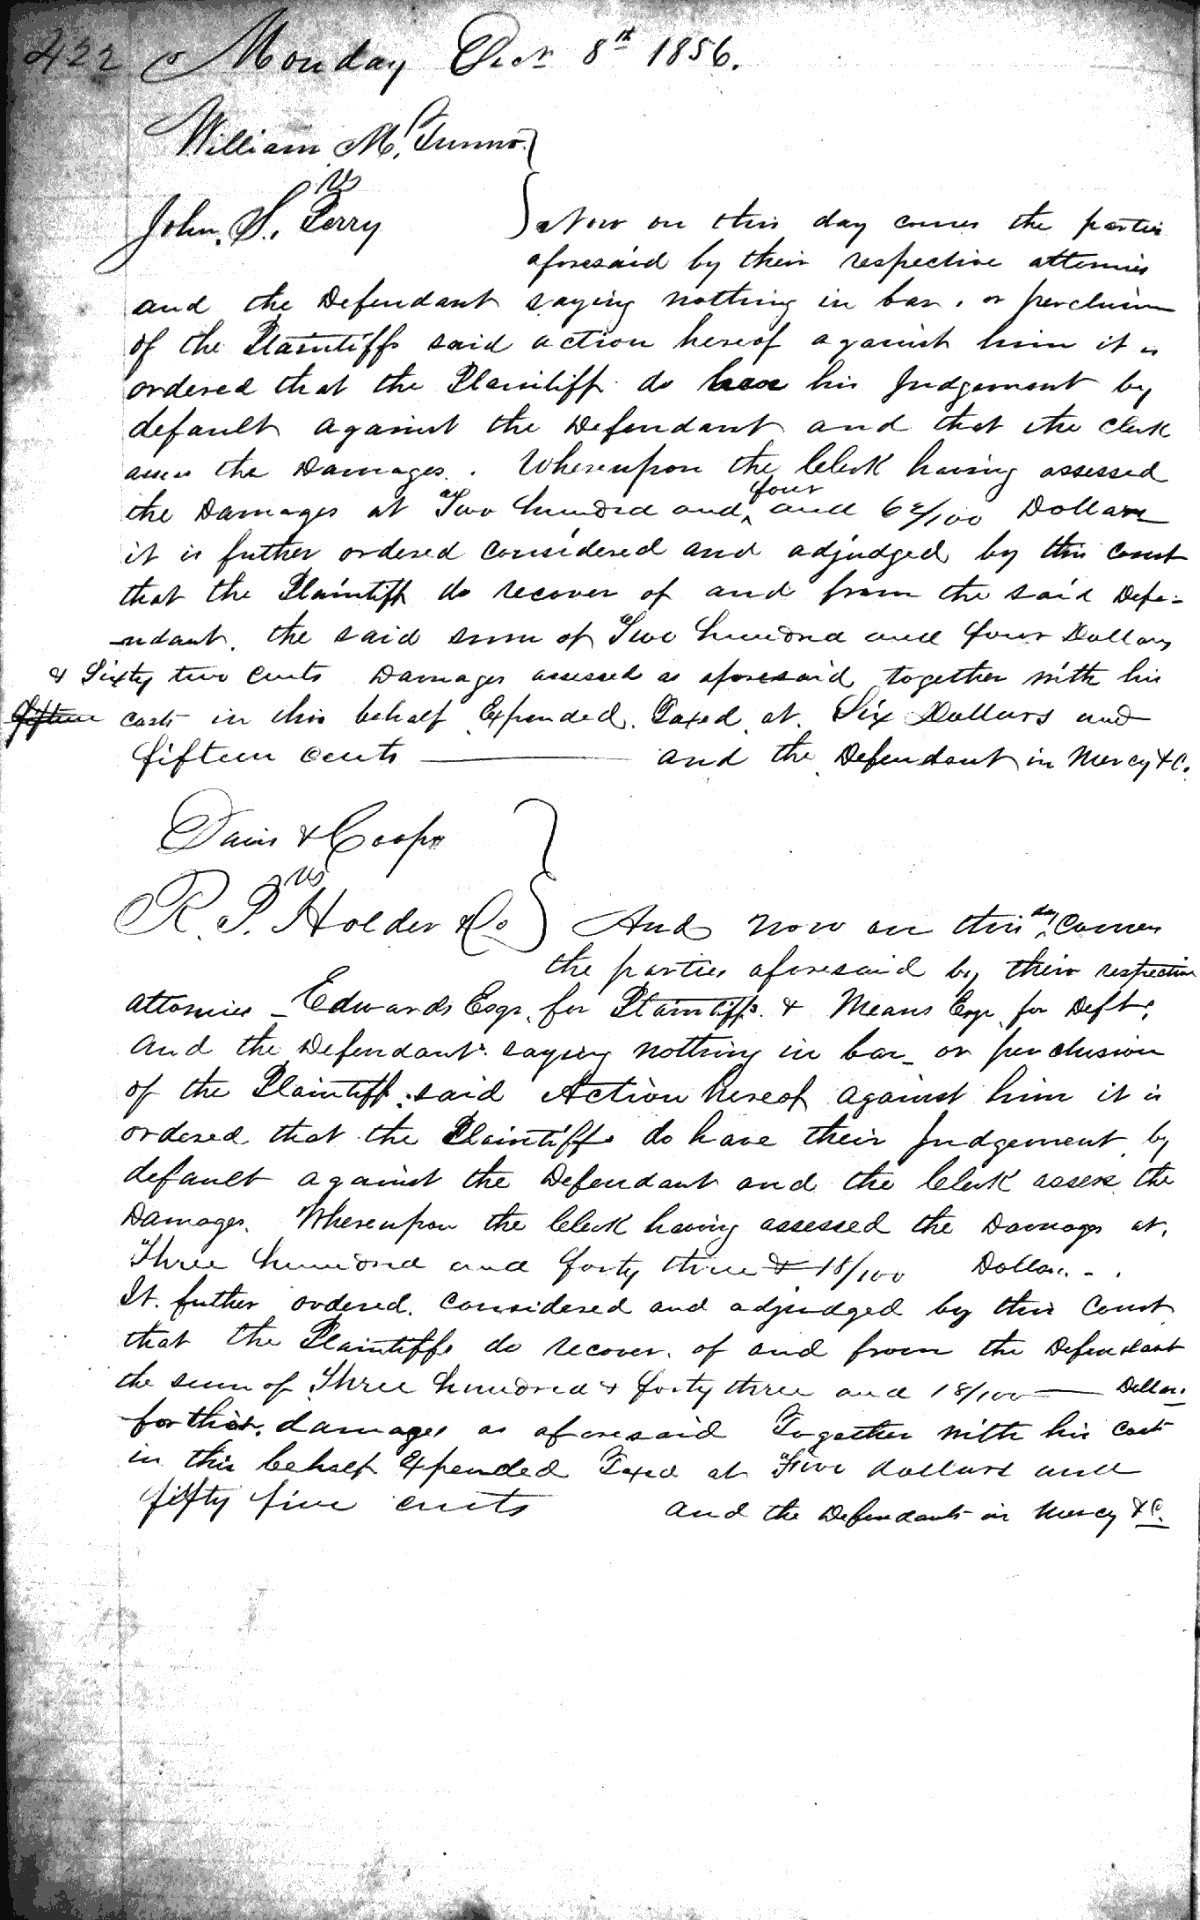 422 Monday Decr 8th 1856.
William M. Turner }
vs
John. S. Perry } Now on this day comes the parties
aforesaid by their respective attornies
and the Defendant saying nothing in bar. or perclusion
of the Plaintiffs said action hereof against him it is
ordered that the Plaintiff do have his Judgement by
default against the Defendant and that the clerk
asses the Damages. Whereupon the Clerk having assessed
the Damages at Two hundred and four and 62/100 Dollars
it is futher ordered considered and adjudged by this court
that the Plaintiff do recover of and from the said Defe-
-ndant. the said sum of Two hundred and four Dollars
& Sixty two cents Damages assessed as aforesaid together with his
costs in this behalf Expended. Taxed at. Six Dollars and
fifteen cents — and the Defendant in Mercy &c.
Davis & Cooper }
vs
R. P. Holder & Co } And now on this day comes
the parties aforesaid by their respective
attornies - Edwards Esqr. for Plaintiffs. & Means Esqr for Defts.
And the Defendants saying nothing in bar - or perclusion
of the Plaintiff said Action hereof against him it is
ordered that the Plaintiffs do have their Judgement by
default against the Defendant and the Clerk assess the
Damages. Whereupon the Clerk having assessed the Damages at.
Three hundred and forty three & 18/100 Dollars. - .
It. futher ordered. considered and adjudged by this Court
that the Plaintiffs do recover. of and from the Defendant
the sum of Three hundred & forty three and 18/100 — Dollars
for their damages as aforesaid Together with his cost
in this behalf Expended Taxed at Five dollars and
fifty five cents and the Defendants in Mercy &c.